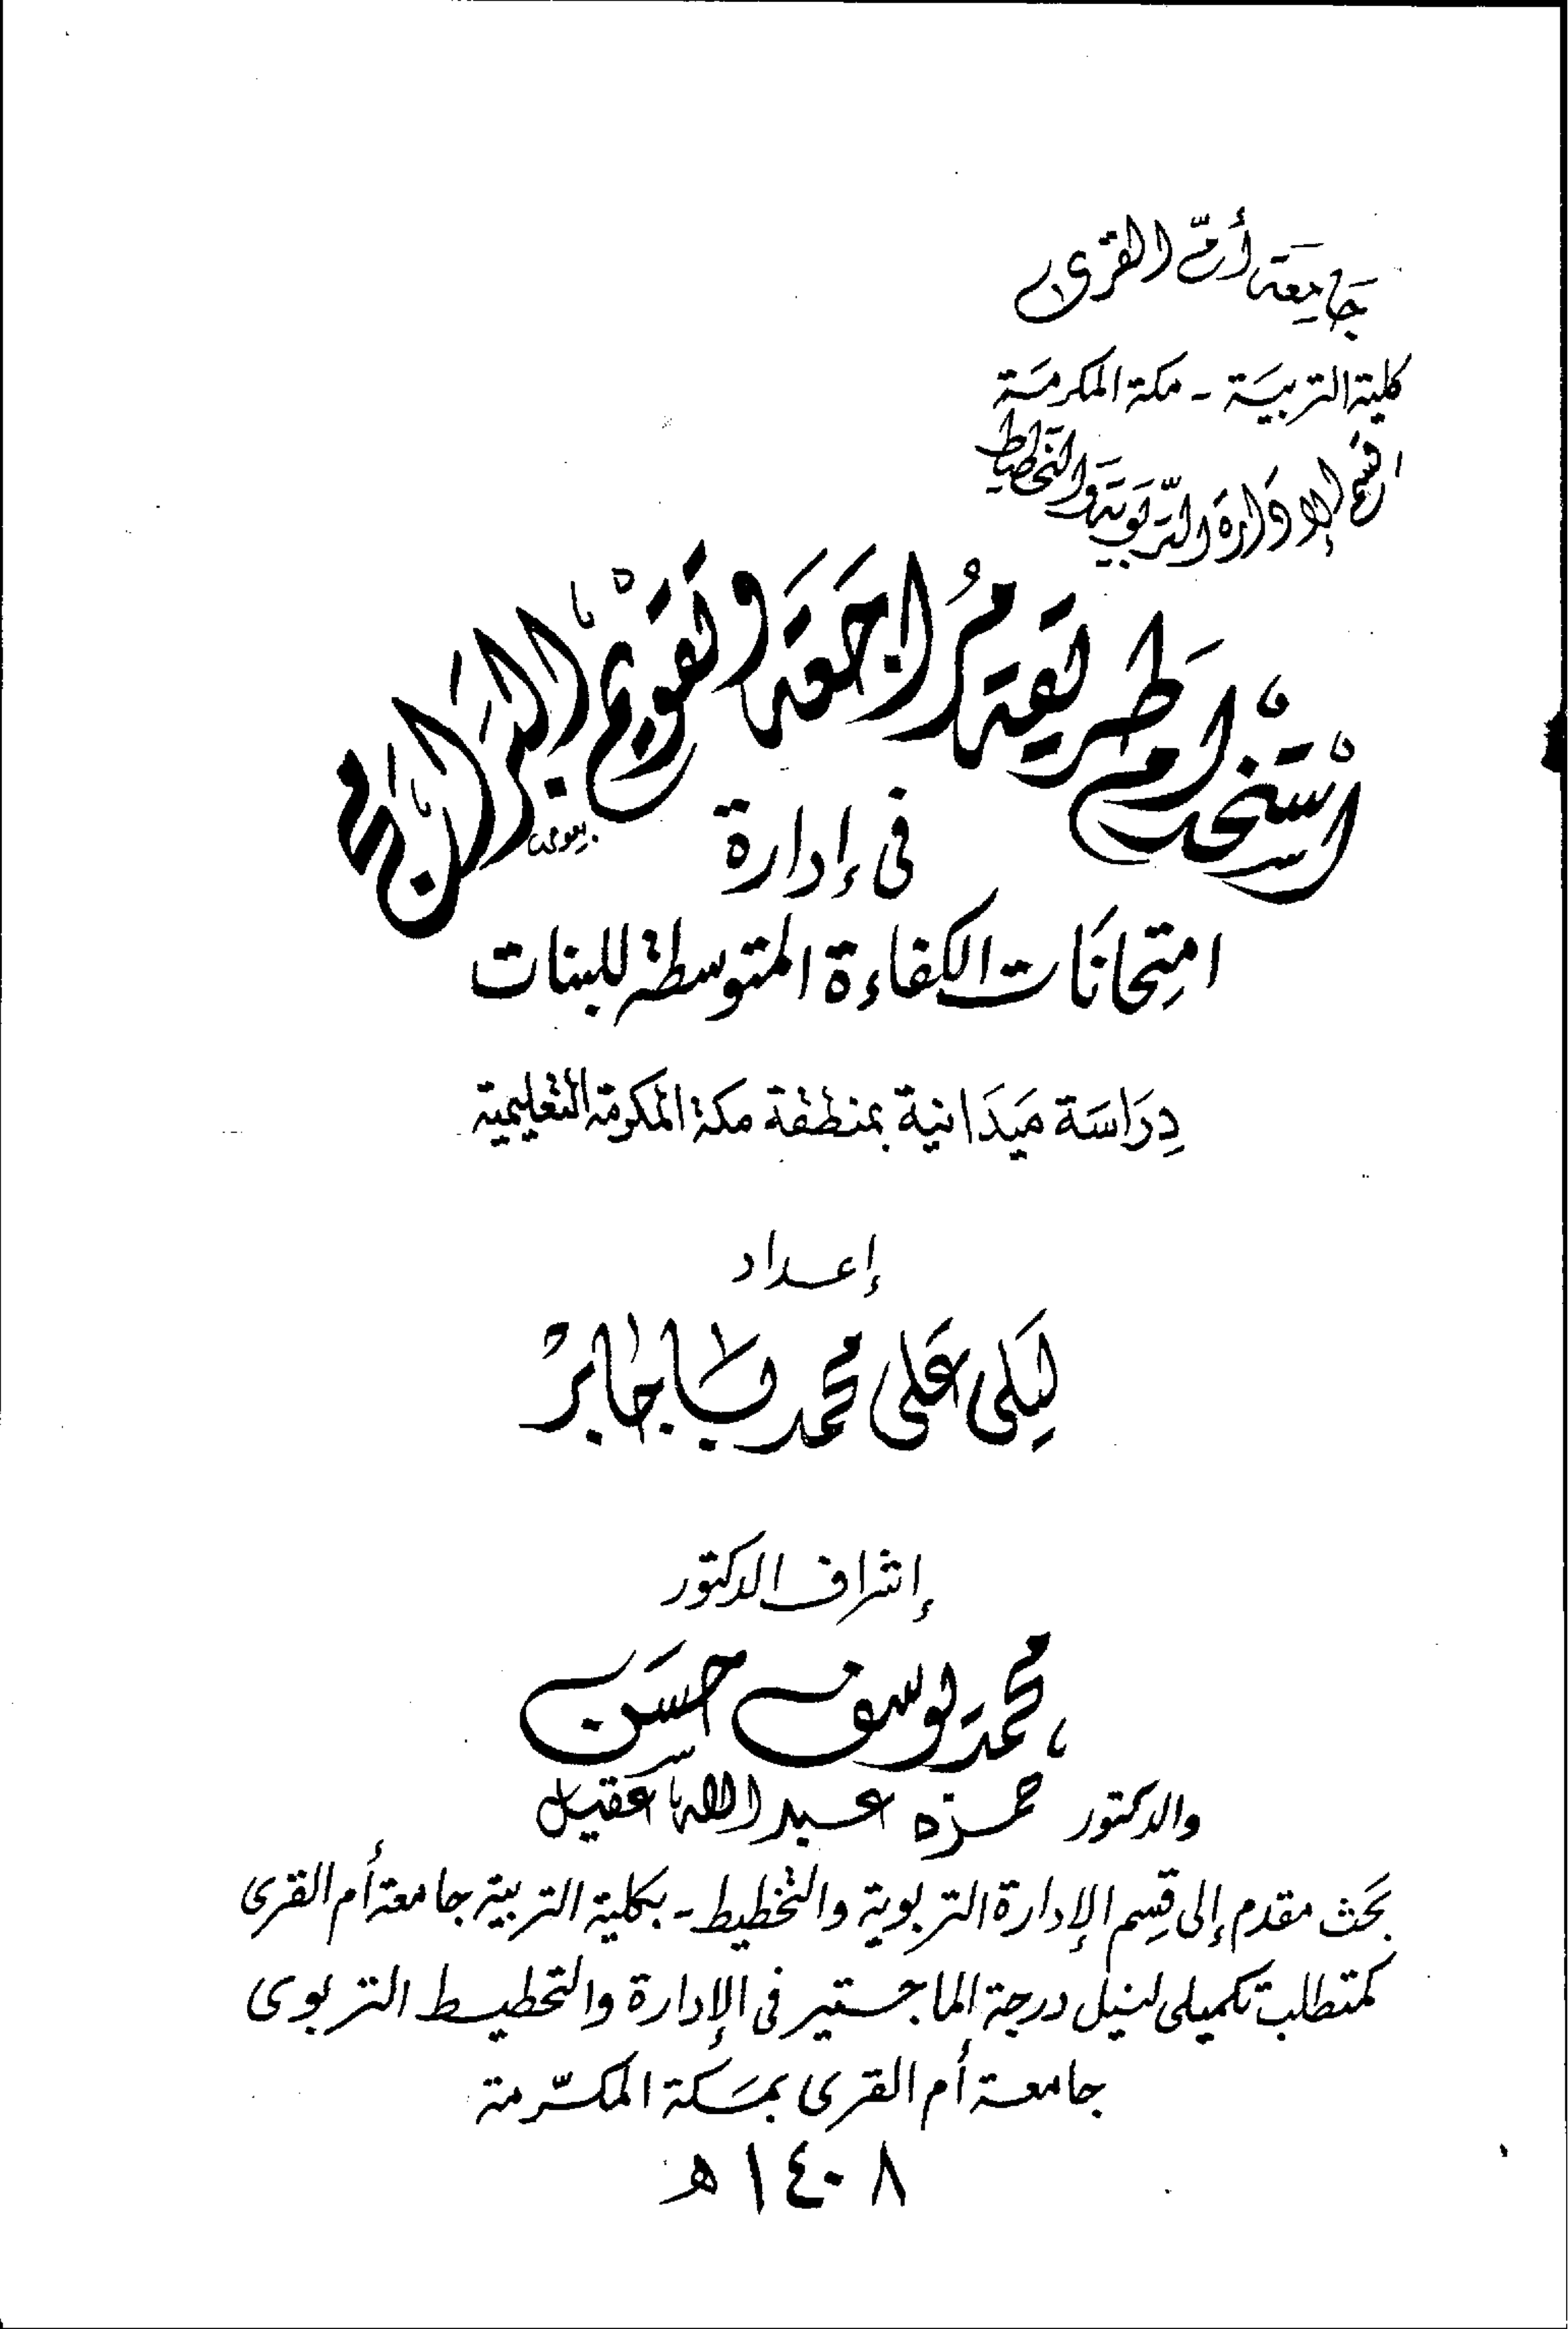 جَامِعَة أُمّ القرى
كلية التربيَة - مكة المكرمَة
قسم الإدارة التّربَويَّة وَالتخطيط
اسْتخدام طَريقة مُراجَعَة وتَقويْم البَرامج
فى إدارة
امتِحانَات الكفاءة المتوسطة للبنات
دِرَاسَة مَيدَانية بمنطقة مكة المكرمة التعليمية
إعداد
ليَلى عَلى محمد باجَابرْ
إشراف الدكتور
محمد يوسف حسَن
والدكتور حمزه عبد الله عقيل
بحَث مقدم إلى قِسم الإدارة التربوية والتخطيط - بكلية التربية جامعة أم القرى
كمتطلب تكميلى لنيل درجة الماجستير فى الإدارة والتخطيط التربوى
جامعة أم القرى بمَكة المكرّمة
١٤٠٨ هـ